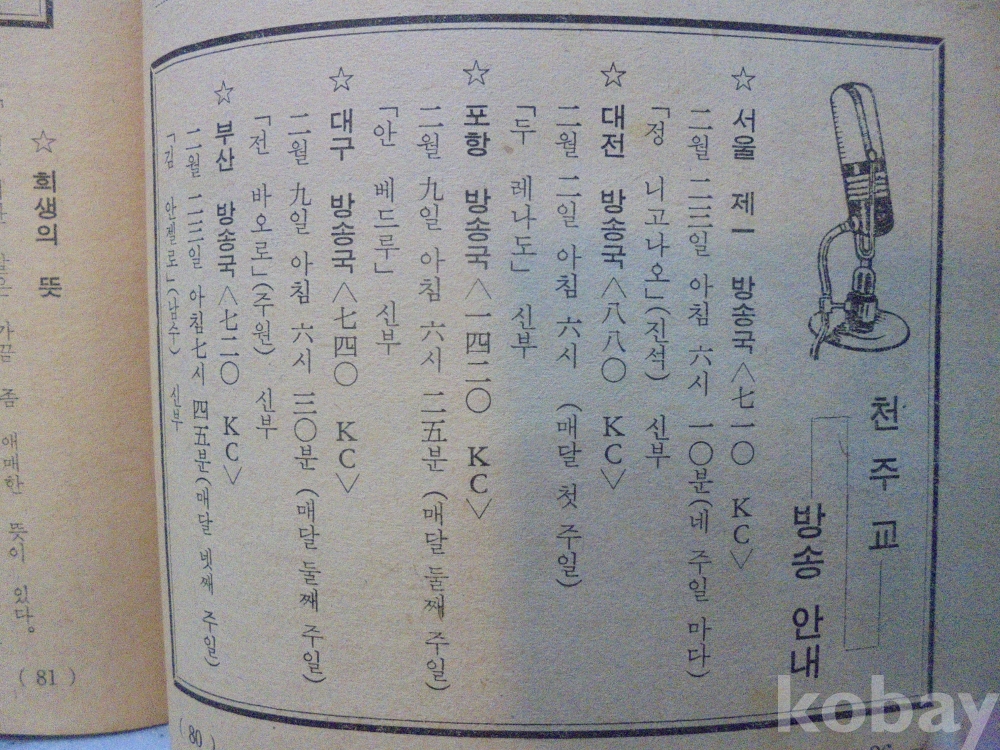 천주교
방송 안내
☆ 서울 제一 방송국〈七一〇 KC〉
二월 二三일 아침 六시 一〇분(네 주일 마다)
「정 니고나오」(진석) 신부
☆ 대전 방송국〈八八〇 KC〉
二월 二일 아침 六시 (매달 첫 주일)
「두 레나도」 신부
☆ 포항 방송국〈一四二〇 KC〉
二월 九일 아침 六시 二五분 (매달 둘째 주일)
「안 베드루」 신부
☆ 대구 방송국〈七四〇 KC〉
二월 九일 아침 六시 三〇분 (매달 둘째 주일)
「전 바오로」(주원) 신부
☆ 부산 방송국〈七二〇 KC〉
二월 二三일 아침 七시 四五분(매달 넷째 주일)
「김 안젤로」(남수) 신부
(80)
☆ 희생의 뜻
가끔 좀 애매한 뜻이 있다。
(81)
kobay